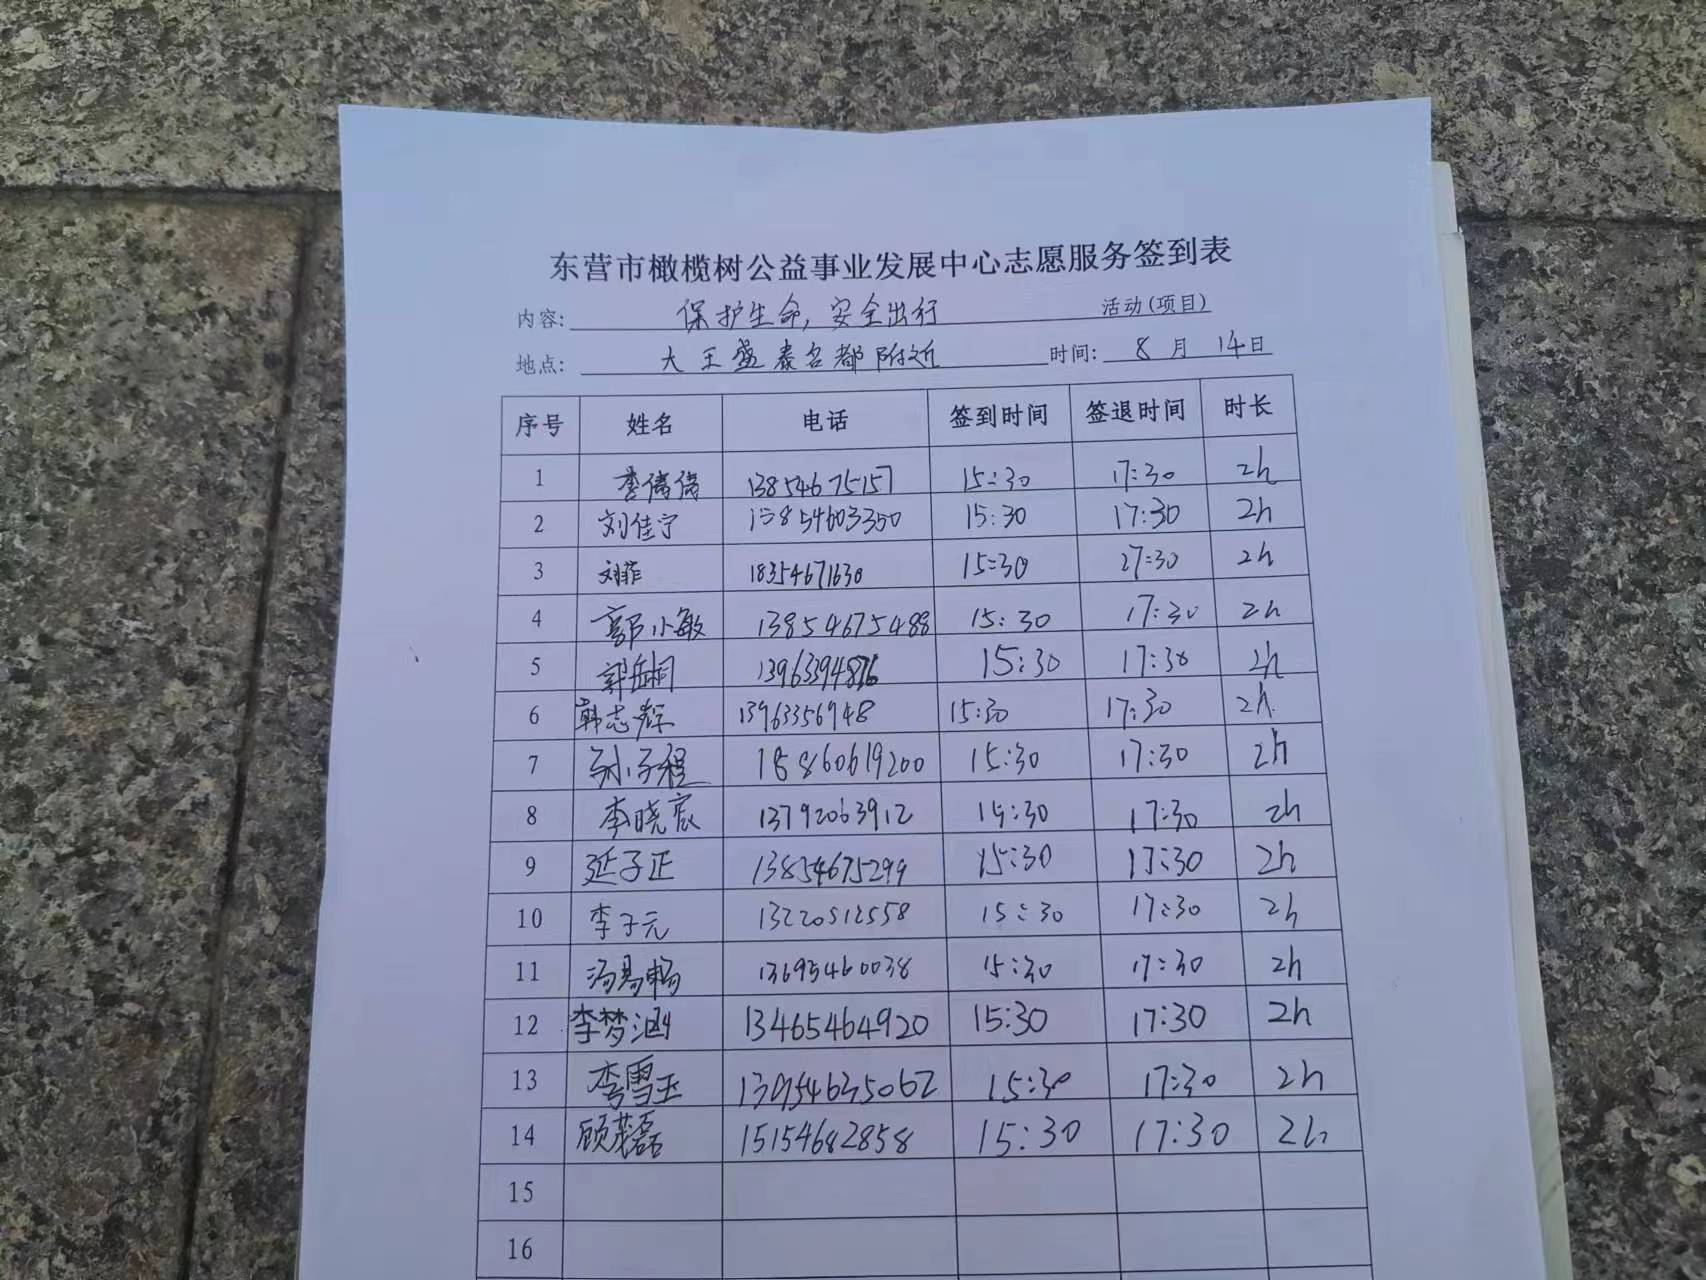 东营市橄榄树公益事业发展中心志愿服务签到表
内容: 保护生命,安全出行 活动(项目)
地点: 大王盛泰名都附近 时间: 8月14日
序号 姓名 电话 签到时间 签退时间 时长
1 李倩倩 13854675157 15:30 17:30 2h
2 刘佳宁 15854603350 15:30 17:30 2h
3 刘菲 18354671630 15:30 17:30 2h
4 郭小敏 13854675488 15:30 17:30 2h
5 郭岳桐 15:30 17:30 2h
6 韩志辉 13963356948 15:30 17:30 2h
7 孙子程 15:30 17:30 2h
8 李晓宸 13792063912 15:30 17:30 2h
9 延子正 13854675299 15:30 17:30 2h
10 李子元 13220512558 15:30 17:30 2h
11 汤易畅 13695460038 15:30 17:30 2h
12 李梦涵 13465464920 15:30 17:30 2h
13 李雪玉 13954635062 15:30 17:30 2h
14 顾茂磊 15154682858 15:30 17:30 2h
15
16